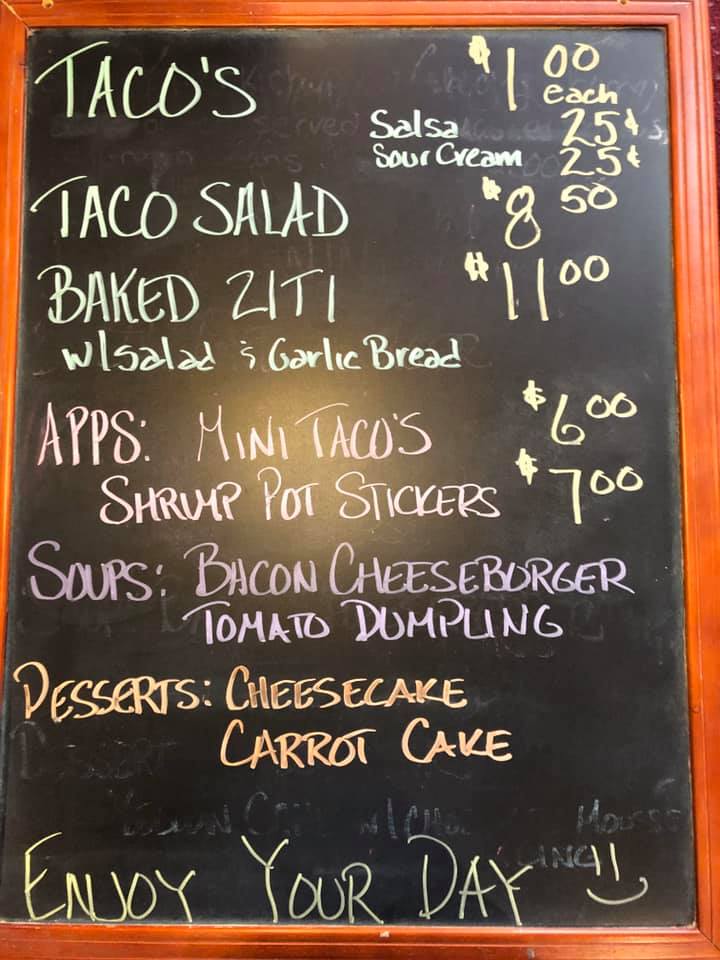 TACO'S $1 00
each
Salsa 25¢
Sour Cream 25¢
TACO SALAD $8 50
BAKED ZITI $11 00
W/Salad & Garlic Bread
APPS: MINI TACO'S $6 00
SHRIMP POT STICKERS $7 00
SOUPS: BACON CHEESEBURGER
TOMATO DUMPLING
DESSERTS: CHEESECAKE
CARROT CAKE
ENJOY YOUR DAY